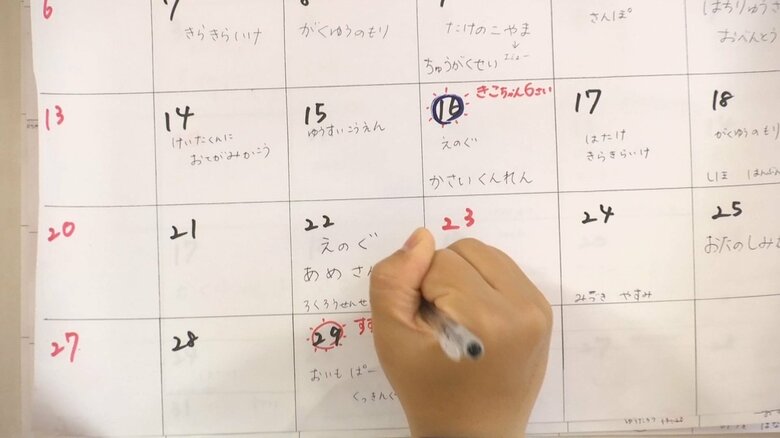 6
きらきらいけ
がくゆうのもり
たけのこやま
↓
ちゅうがくせい
さんぽ
おべんとう
13
14
けいたくんに
おてがみかこう
15
ゆうすいこうえん
16
きこちゃん6さい
えのぐ
かさいくんれん
17
はたけ
きらきらいけ
18
がくゆうのもり
しほ
20
21
22
えのぐ
あめ さん
ろくろうせんせ
23
24
みづき やすみ
25
おたのしみ
27
28
29
おいも ぱー
くっきんぐ